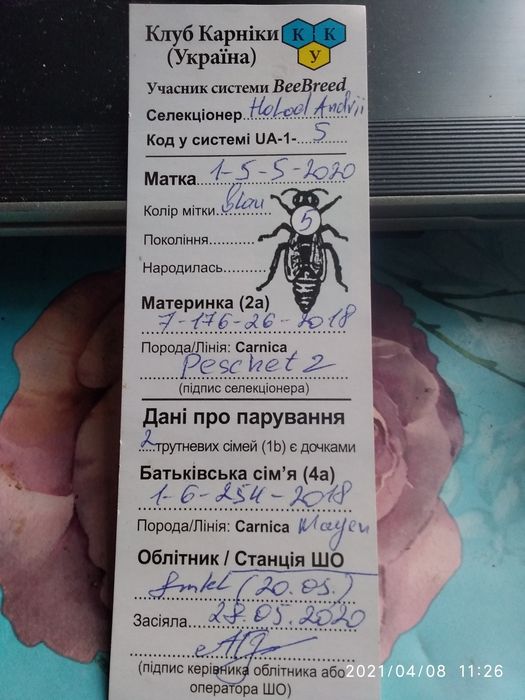 Клуб Карніки
(Україна)
К К
У
Учасник системи BeeBreed
Селекціонер Holod Andrii
Код у системі UA-1-...5
Матка 1-5-5-2020
Колір мітки Blau
5
Покоління
Народилась
Материнка (2а)
7-176-26-2018
Порода/Лінія: Carnica
Peschetz
(підпис селекціонера)
Дані про парування
2 трутневих сімей (1b) є дочками
Батьківська сім'я (4а)
1-6-254-2018
Порода/Лінія: Carnica
Облітник / Станція ШО
(20.05.)
Засіяла 28.05.2020
(підпис керівника облітника або
оператора ШО)
2021/04/08 11:26